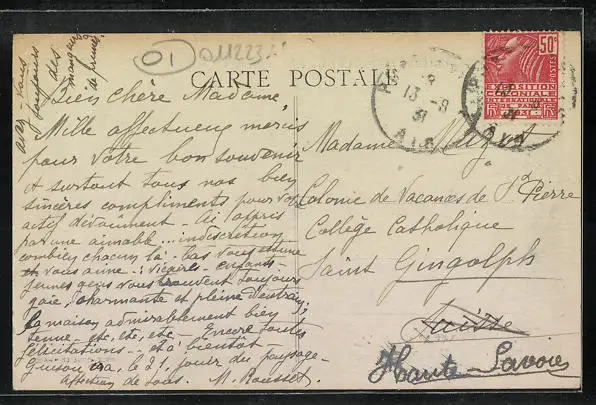 01
011223
avez-vous
toujours
des
manques
de primes
CARTE POSTALE
50c
POSTES
EXPOSITION
COLONIALE
INTERNATIONALE
PARIS
1931
13 -8
31
AIN
Bien chère Madame,
Mille affectueux mercis
pour votre bon souvenir
et surtout tous nos bien
sincères compliments pour votre
actif dévouement. Ai appris
par une aimable... indiscrétion
combien chacun là-bas vous estime
et vous aime. : vicaires - enfants -
jeunes gens vous trouvent toujours
gaie, charmante et pleine d'entrain,
la maison admirablement bien
tenue - etc, etc, etc. Encore toutes
félicitations - et à bientôt
le 21, jouir du paysage -
Affection de tous. M. Rousset
Madame
Colonie de Vacances de St Pierre
Collège Catholique
Saint Gingolph
Suisse
Haute Savoie